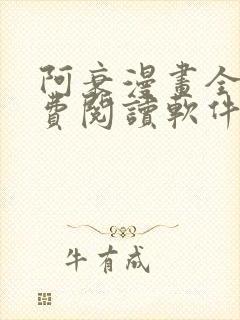 阿衰漫畫全
費閱讀軟件
牛有成